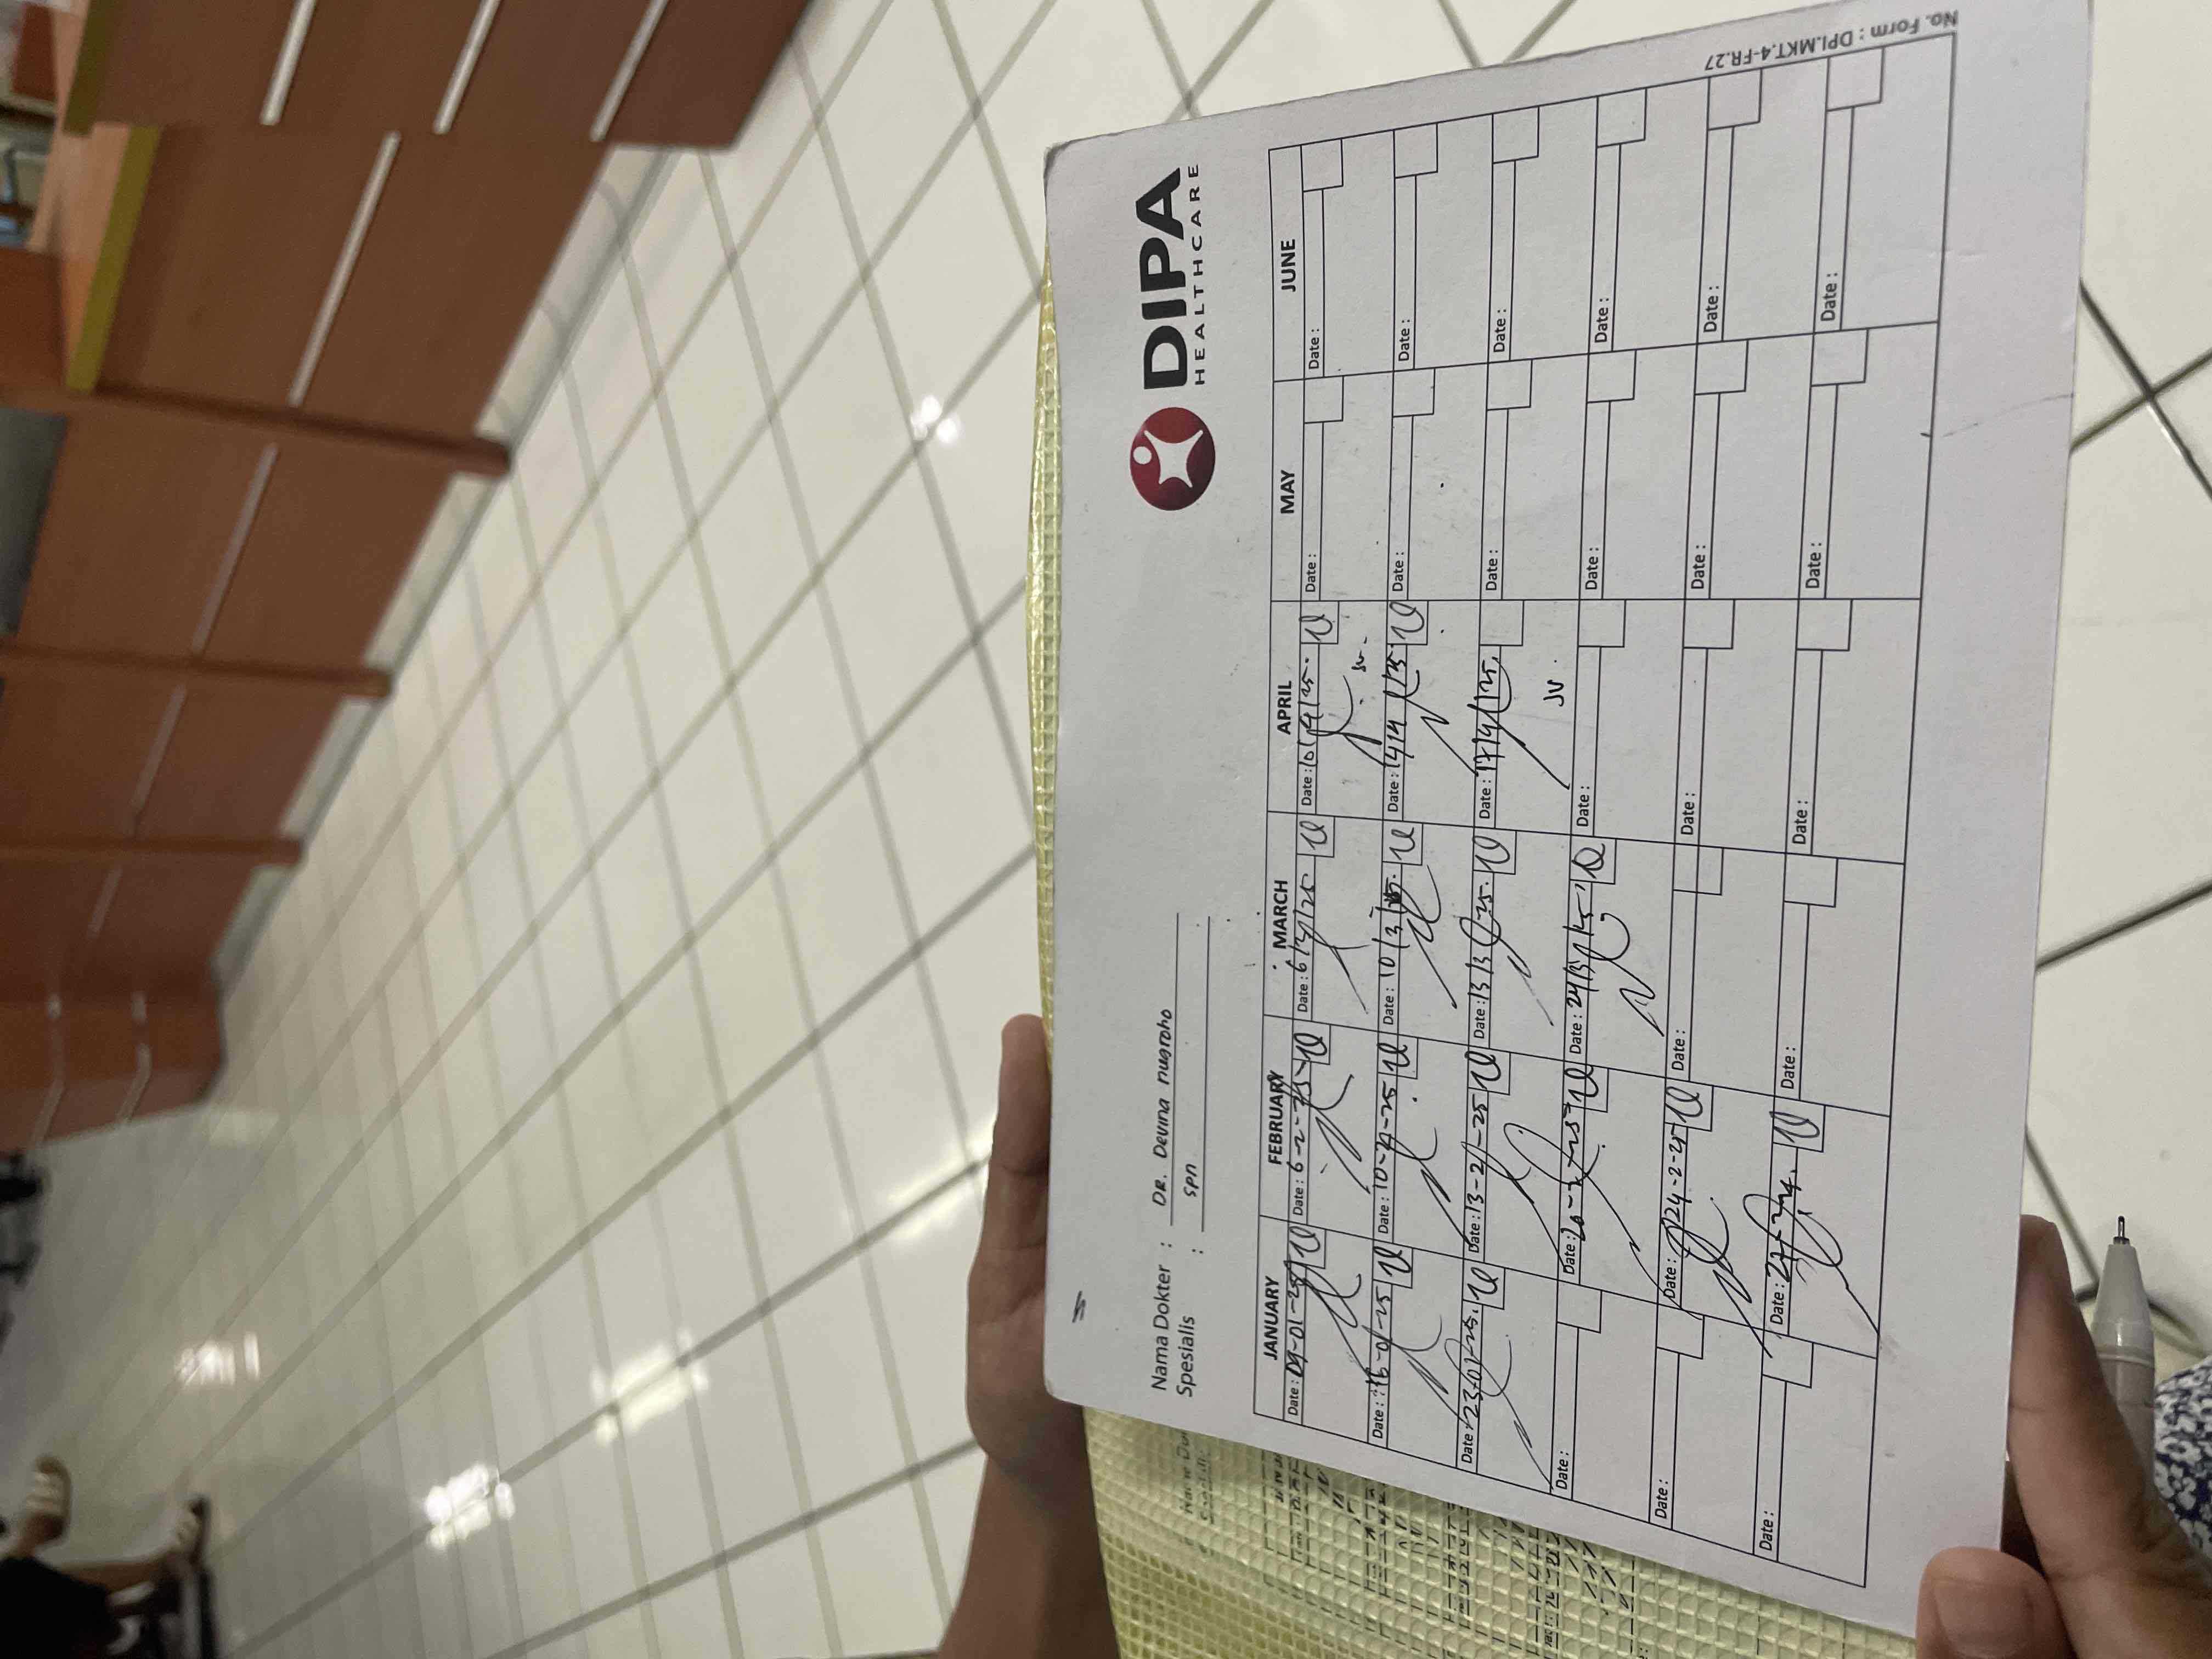 DIPA
HEALTHCARE
Nama Dokter : DR. Devina nugroho
Spesialis : spn
JANUARY FEBRUARY MARCH APRIL MAY JUNE
Date : 09-01-25 Date : 6-2-25 Date : 6/3/25 Date : 10/4/25. Date : Date :
Date : 16-01-25 Date : 10-2-25 Date : 10/3/25. Date : 14/4/25 Date : Date :
Date : 23/01/25. Date : 13-2-25 Date : 13/3/25. Date : 17/4/25. Date : Date :
Date : Date : 20-2-25 Date : 24/3/25 Date : Date : Date :
Date : Date : 24-2-25 Date : Date : Date : Date :
Date : Date : Date : Date : Date : Date :
No. Form : DPI.MKT.4-FR.27